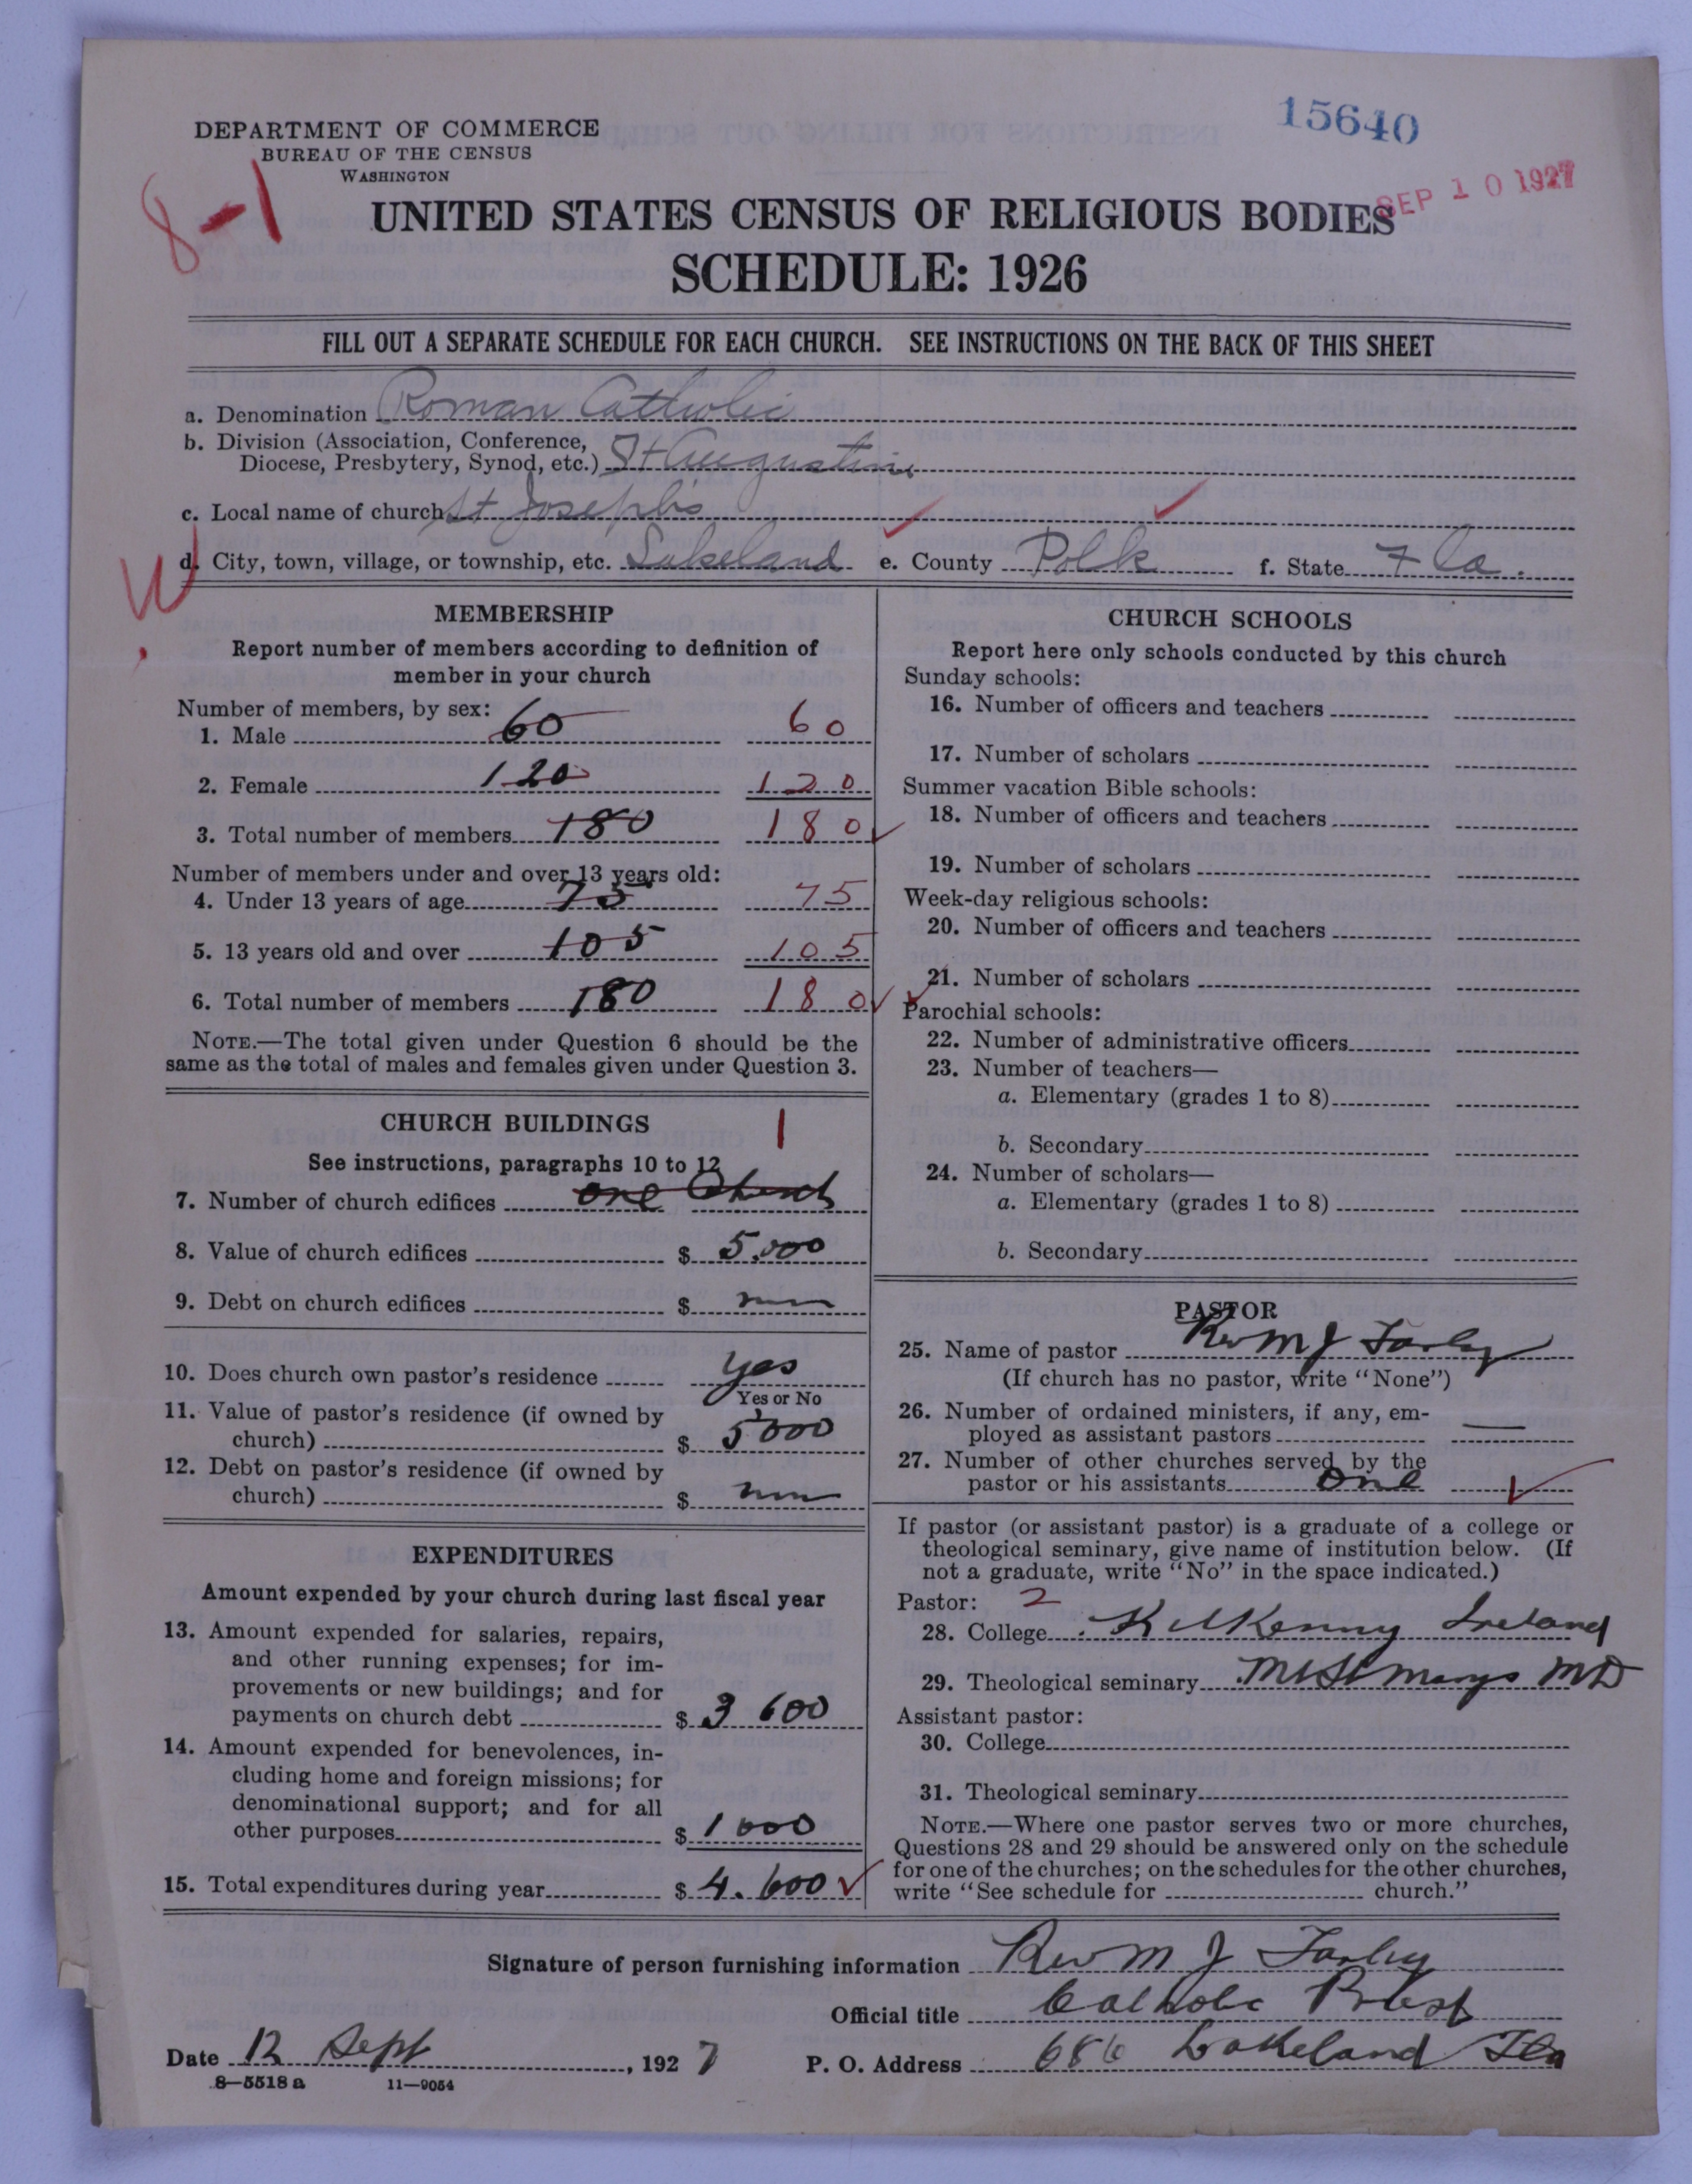 15640
DEPARTMENT OF COMMERCE
BUREAU OF THE CENSUS
WASHINGTON
SEP 10 1927
8-1
UNITED STATES CENSUS OF RELIGIOUS BODIES
SCHEDULE: 1926
FILL OUT A SEPARATE SCHEDULE FOR EACH CHURCH. SEE INSTRUCTIONS ON THE BACK OF THIS SHEET
a. Denomination Roman Catholic
b. Division (Association, Conference,
Diocese, Presbytery, Synod, etc.) St Augustine
c. Local name of church St Joseph's
W
d. City, town, village, or township, etc. Lakeland e. County Polk f. State Fla.
MEMBERSHIP
Report number of members according to definition of
member in your church
Number of members, by sex:
1. Male 60 60
2. Female 120 120
3. Total number of members 180 180
Number of members under and over 13 years old:
4. Under 13 years of age 75 75
5. 13 years old and over 105 105
6. Total number of members 180 180
NOTE.—The total given under Question 6 should be the
same as the total of males and females given under Question 3.
CHURCH BUILDINGS 1
See instructions, paragraphs 10 to 12
7. Number of church edifices one Church
8. Value of church edifices $ 5,000
9. Debt on church edifices $
10. Does church own pastor's residence yes
Yes or No
11. Value of pastor's residence (if owned by
church) $ 5000
12. Debt on pastor's residence (if owned by
church) $
EXPENDITURES
Amount expended by your church during last fiscal year
13. Amount expended for salaries, repairs,
and other running expenses; for im-
provements or new buildings; and for
payments on church debt $ 3 600
14. Amount expended for benevolences, in-
cluding home and foreign missions; for
denominational support; and for all
other purposes $ 1 000
15. Total expenditures during year $ 4.600
CHURCH SCHOOLS
Report here only schools conducted by this church
Sunday schools:
16. Number of officers and teachers
17. Number of scholars
Summer vacation Bible schools:
18. Number of officers and teachers
19. Number of scholars
Week-day religious schools:
20. Number of officers and teachers
21. Number of scholars
Parochial schools:
22. Number of administrative officers
23. Number of teachers—
a. Elementary (grades 1 to 8)
b. Secondary
24. Number of scholars—
a. Elementary (grades 1 to 8)
b. Secondary
PASTOR
25. Name of pastor Rev M J Farley
(If church has no pastor, write "None")
26. Number of ordained ministers, if any, em-
ployed as assistant pastors
27. Number of other churches served by the
pastor or his assistants one
If pastor (or assistant pastor) is a graduate of a college or
theological seminary, give name of institution below. (If
not a graduate, write "No" in the space indicated.)
Pastor: 2
28. College Kilkenny Ireland
29. Theological seminary Mt St Marys MD
Assistant pastor:
30. College
31. Theological seminary
NOTE.—Where one pastor serves two or more churches,
Questions 28 and 29 should be answered only on the schedule
for one of the churches; on the schedules for the other churches,
write "See schedule for church."
Signature of person furnishing information Rev M J Farley
Official title Catholic Priest
Date 12 Sept, 1927 P. O. Address 686 Lakeland Fla
8—5518 a 11—9054